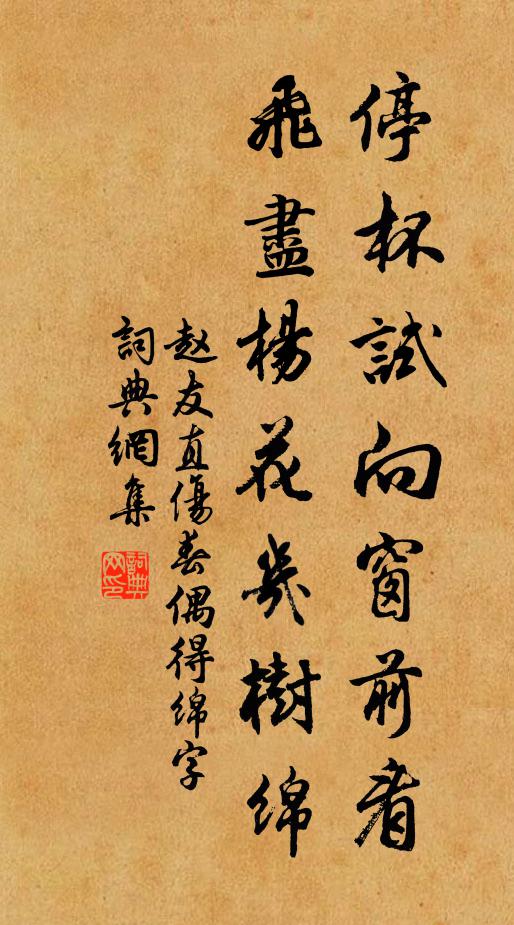 停杯試向窗前看
飛盡楊花幾樹綿
赵友直傷春偶得綿字
詞典網集
詞典
网印